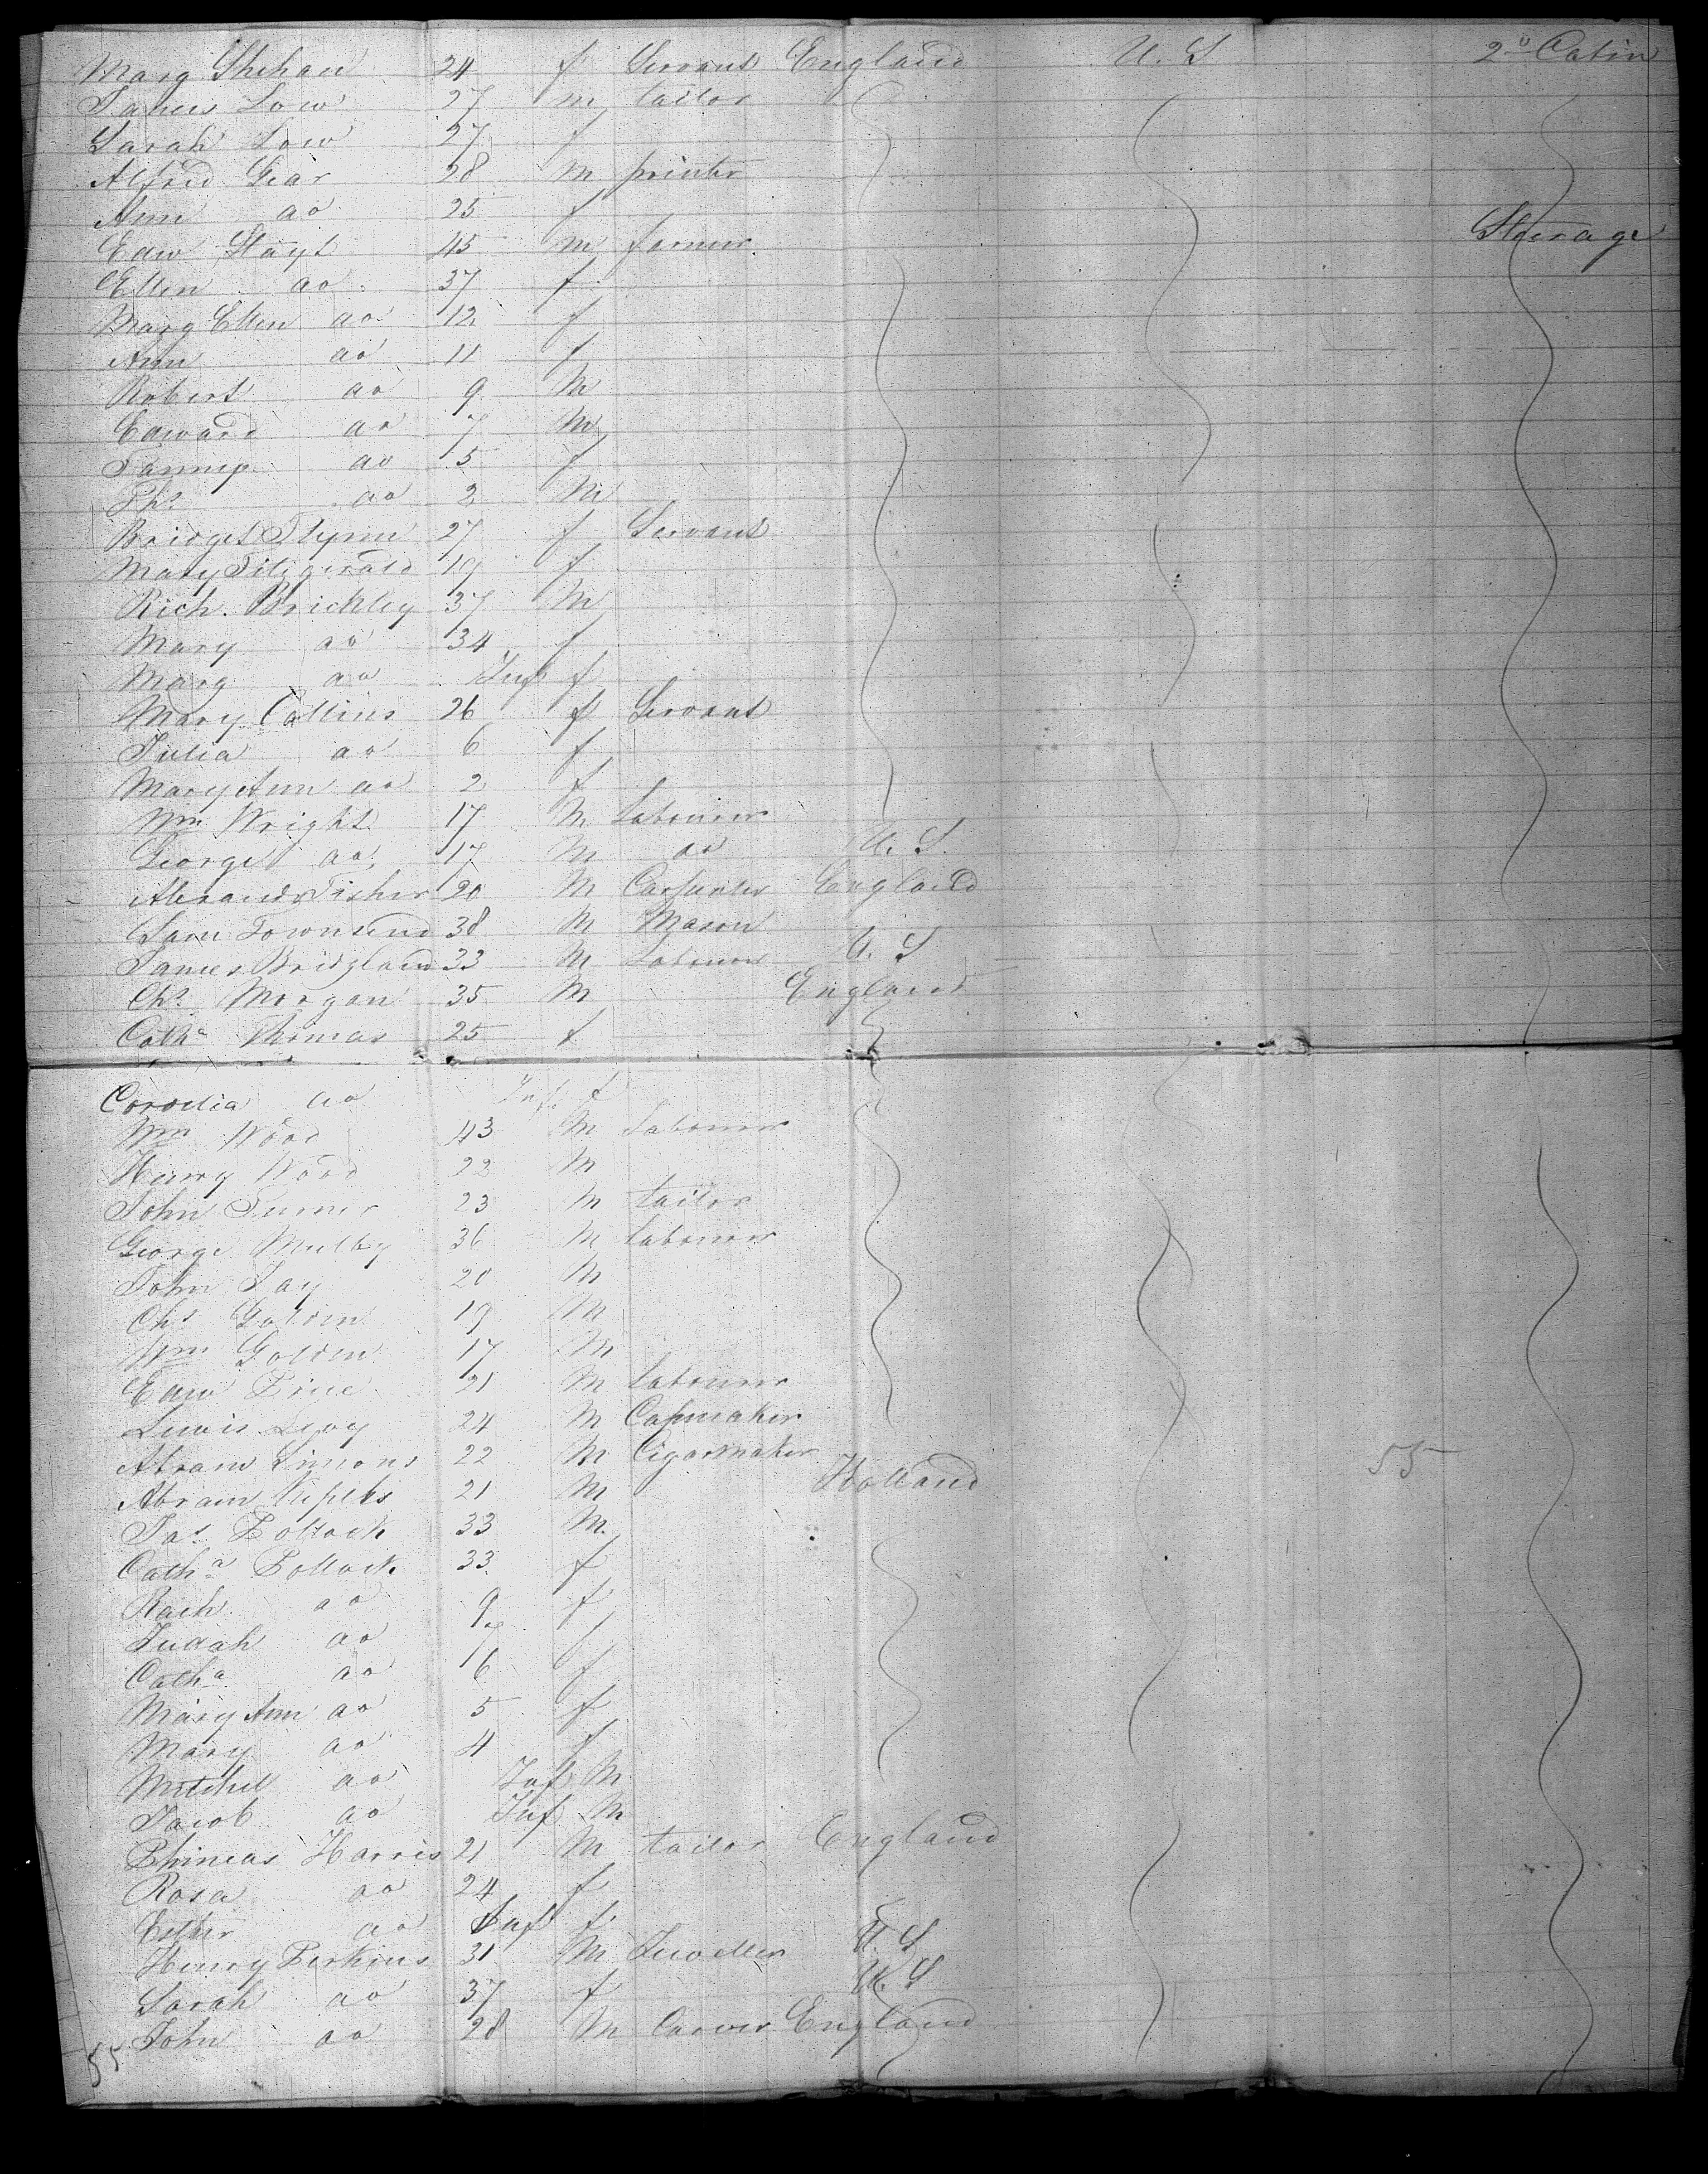 Marg Shehan 24 f Servant England U. S 2d Cabin
James Low 27 m tailor
Sarah Low 27 f
Alfred Gear 28 m printer
Ann do 25 f
Edw Stayt 45 m farmer Steerage
Ellen do 37 f
Marg Ellen do 12 f
Ann do 11 f
Robert do 9 M
Edward do 7 M
Fanny do 5 f
Ths do 2 M
Bridget Flynn 27 f Servant
Mary Fitzgerald 19 f
Rich. Brickley 37 M
Mary do 34 f
Marg do Inf f
Mary Collins 26 f Servant
Julia do 6 f
Mary Ann do 2 f
Wm Wright 17 M Labourer
George do 17 M do U. S.
Alexandr Fisher 20 M Carpenter England
Sam Townsend 38 M Mason
James Bridgland 33 M Labourer U. S
Chs Morgan 35 M England
Catha Thomas 25 f
Cordelia do Inf. f
Wm Wood 43 M Labourer
Henry Wood 22 M
John Turner 23 M tailor
George Mulby 36 M labourer
John Jay 20 M
Chs Golden 19 M
Wm Golden 17 M
Edw Pine 21 M labourer
Lewis Levy 24 M Capmaker
Abram Simons 22 M Cigarmaker 55
Abram 21 M Holland
Jas Pollock 33 M.
Catha Pollock 33 f
Rach do 9 f
Judah do 7 f
Catha do 6 f
Mary Ann do 5 f
Mary do 4 f
Mitchel do Inf M
Jacob do Inf M
Phineas Harris 21 M tailor England
Rosa do 24 f
Esther do Inf f.
Henry Perkins 31 M Jeweller U. S
Sarah do 37 f U. S
John do 28 M Carver England
55